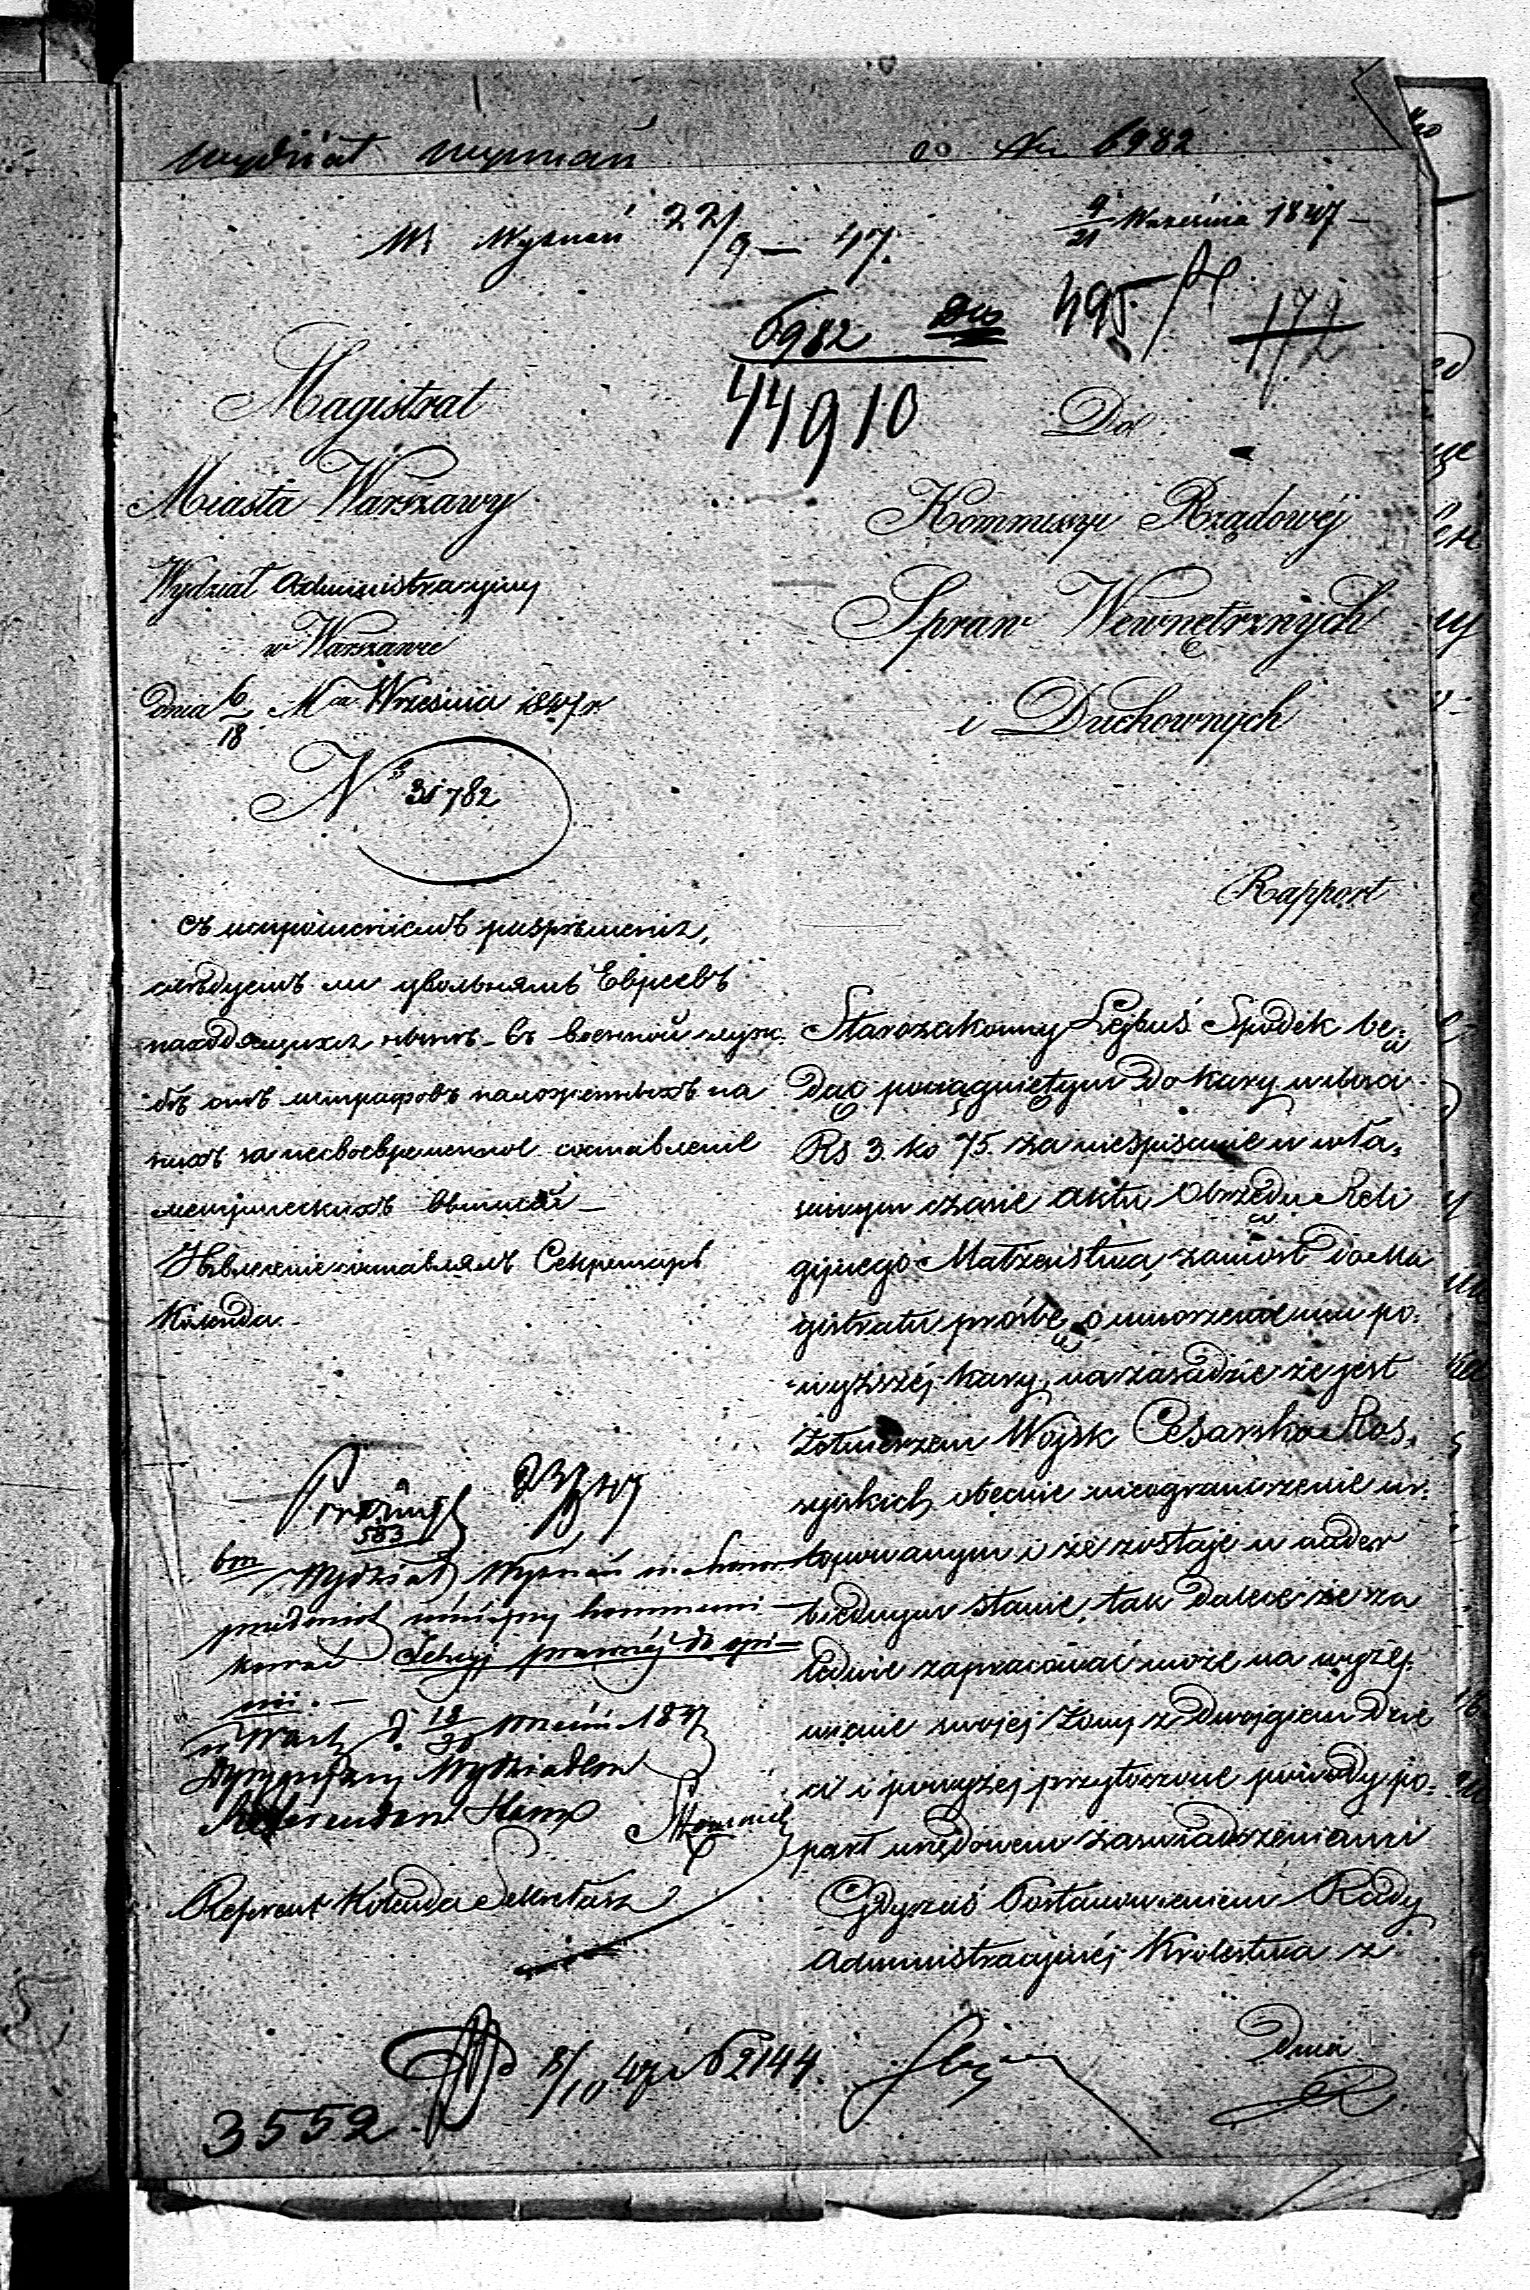 Wydział Wyznań
No 6982
W. Wyznań 22/9 – 47.
9/21 Września 1847
6982
495
172
44910
Magistrat
Miasta Warszawy
Wydział Administracyjny
w Warszawie
dnia 6/18 Mca Września 1847 r.
No 31782
Do
Kommissyi Rządowéj
Spraw Wewnętrznych
i Duchownych
Rapport
съ испрошеніемъ разрѣшенія,
слѣдуетъ ли увольнять Евреевъ
находящихся нынѣ въ военной служ-
бѣ отъ штрафовъ наложенныхъ на
нихъ за несвоевременное составленіе
метрическихъ выписей –
Извлеченіе составлялъ Секретарь
Коленда.
Starozakonny Lejbuś Spodek bę-
dąc pociągniętym do kary w ilości
Rs 3. ko 75. za niespisanie w wła-
ściwym czasie aktu Obrzędu Reli
gijnego Małżeństwa, zaniósł do Ma
gistratu prośbę o umorzenie mu po-
wyższéj kary, na zasadzie że jest
Żołnierzem Wojsk Cesarsko Ros-
syjskich, obecnie nieograniczenie ur-
lopowanym i że zostaje w nader
biednym stanie, tak dalece że za
ledwie zapracować może na wyży-
wienie swojej żony z dwojgiem dzie
ci i powyżej przytoczone powody po-
parł urzędowem zaświadczeniami
Gdyzaś Postanowieniem Rady
Administracyjnéj Królestwa z
dnia
583
Wydział Wyznań
przedmiot niniejszy kommuni-
kować Sekcyi prawnéj do opi-
nii. –
w Warsz. d. 18/30 Wrześn. 1847
Dyrygujący Wydziałem
Referendarz Stanu
Referent Kolenda Sekretarz
8/10 47 N 2144.
3552